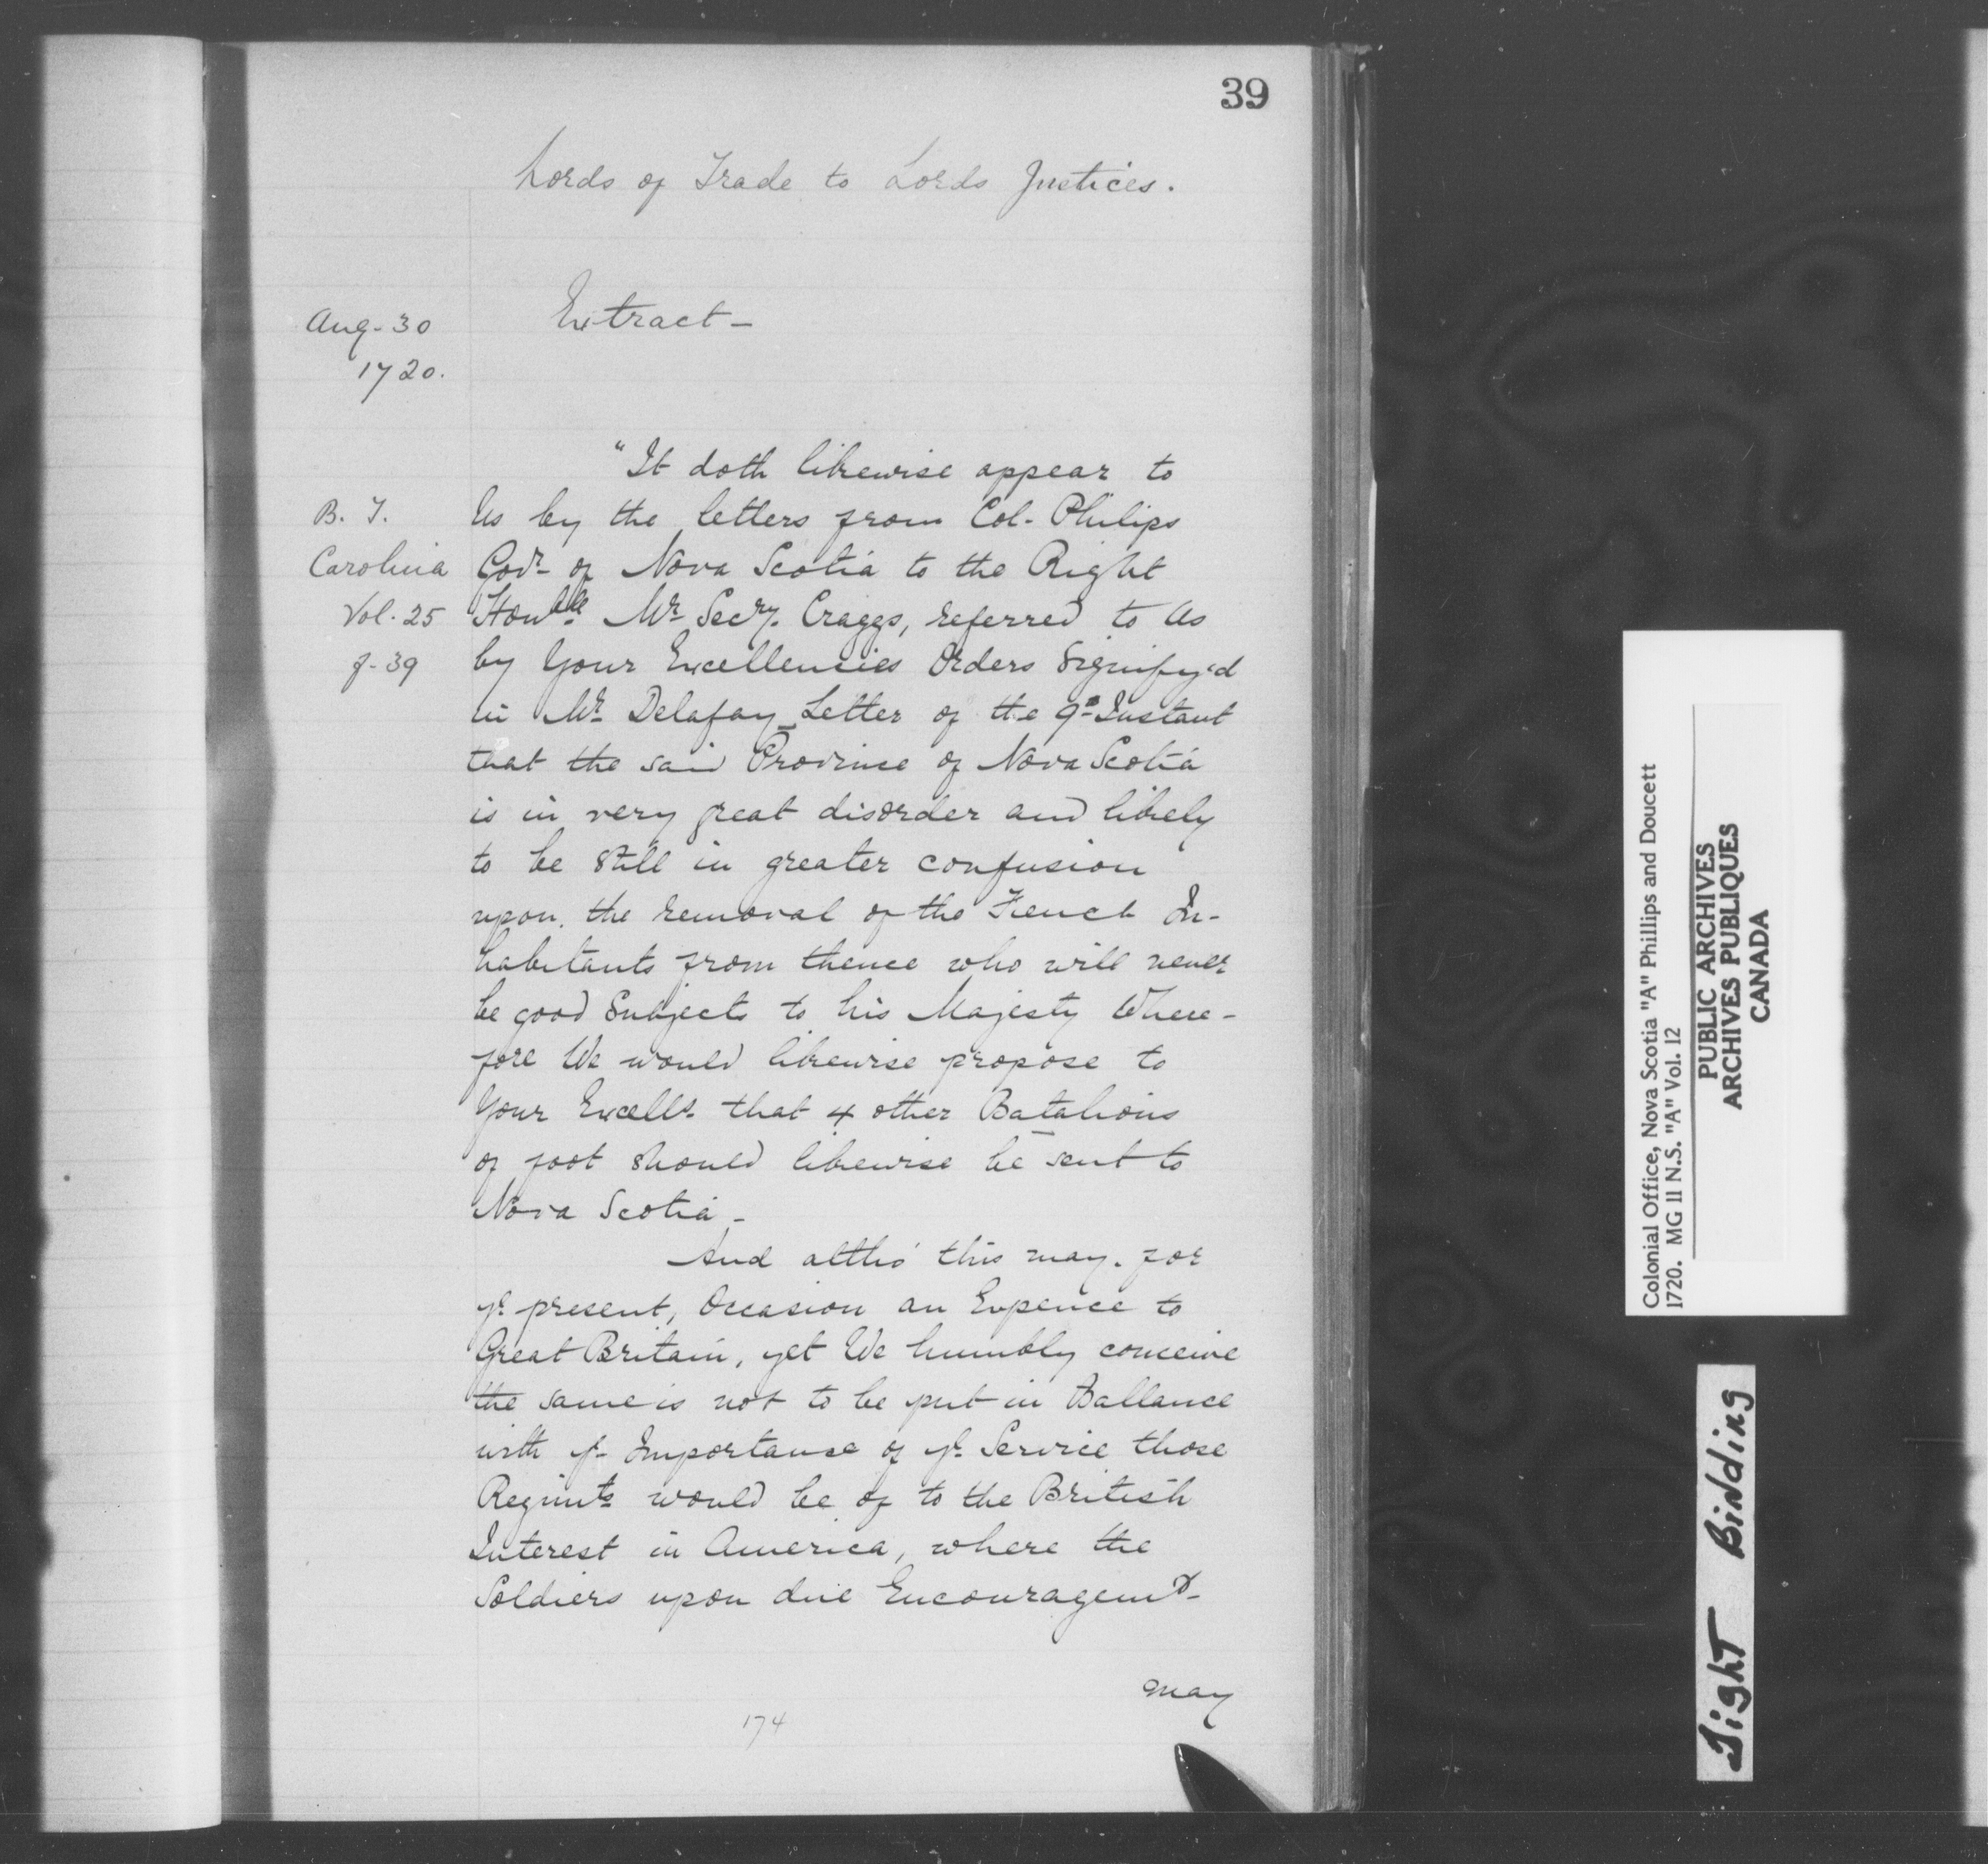 39
Lords of Trade to Lords Justices.
Aug- 30
1720.
Extract -
B. T.
Carolina
Vol. 25
f- 39
"It doth likewise appear to
Us by the letters from Col- Philips
Govr- of Nova Scotia to the Right
Honble Mr Secry. Craggs, referred to Us
by Your Excellencies Orders Signify'd
in Mr Delafay Letter of the 9th Instant
that the said Province of Nova Scotia
is in very great disorder and likely
to be still in greater confusion
upon the removal of the French In-
habitants from thence who will never
be good Subjects to his Majesty Where-
fore We would likewise propose to
Your Excells- that 4 other Batalions
of foot should likewise be sent to
Nova Scotia -
And altho' this may. for
ye present, Occasion an Expence to
Great Britain, yet We humbly conceive
the same is not to be put in Ballance
with ye Importance of ye Service those
Regimts would be of to the British
Interest in America, where the
Soldiers upon due Encouragemt-
may
174
Colonial Office, Nova Scotia "A" Phillips and Doucett
1720. MG 11 N.S. "A" Vol. 12
PUBLIC ARCHIVES
ARCHIVES PUBLIQUES
CANADA
Tight Binding